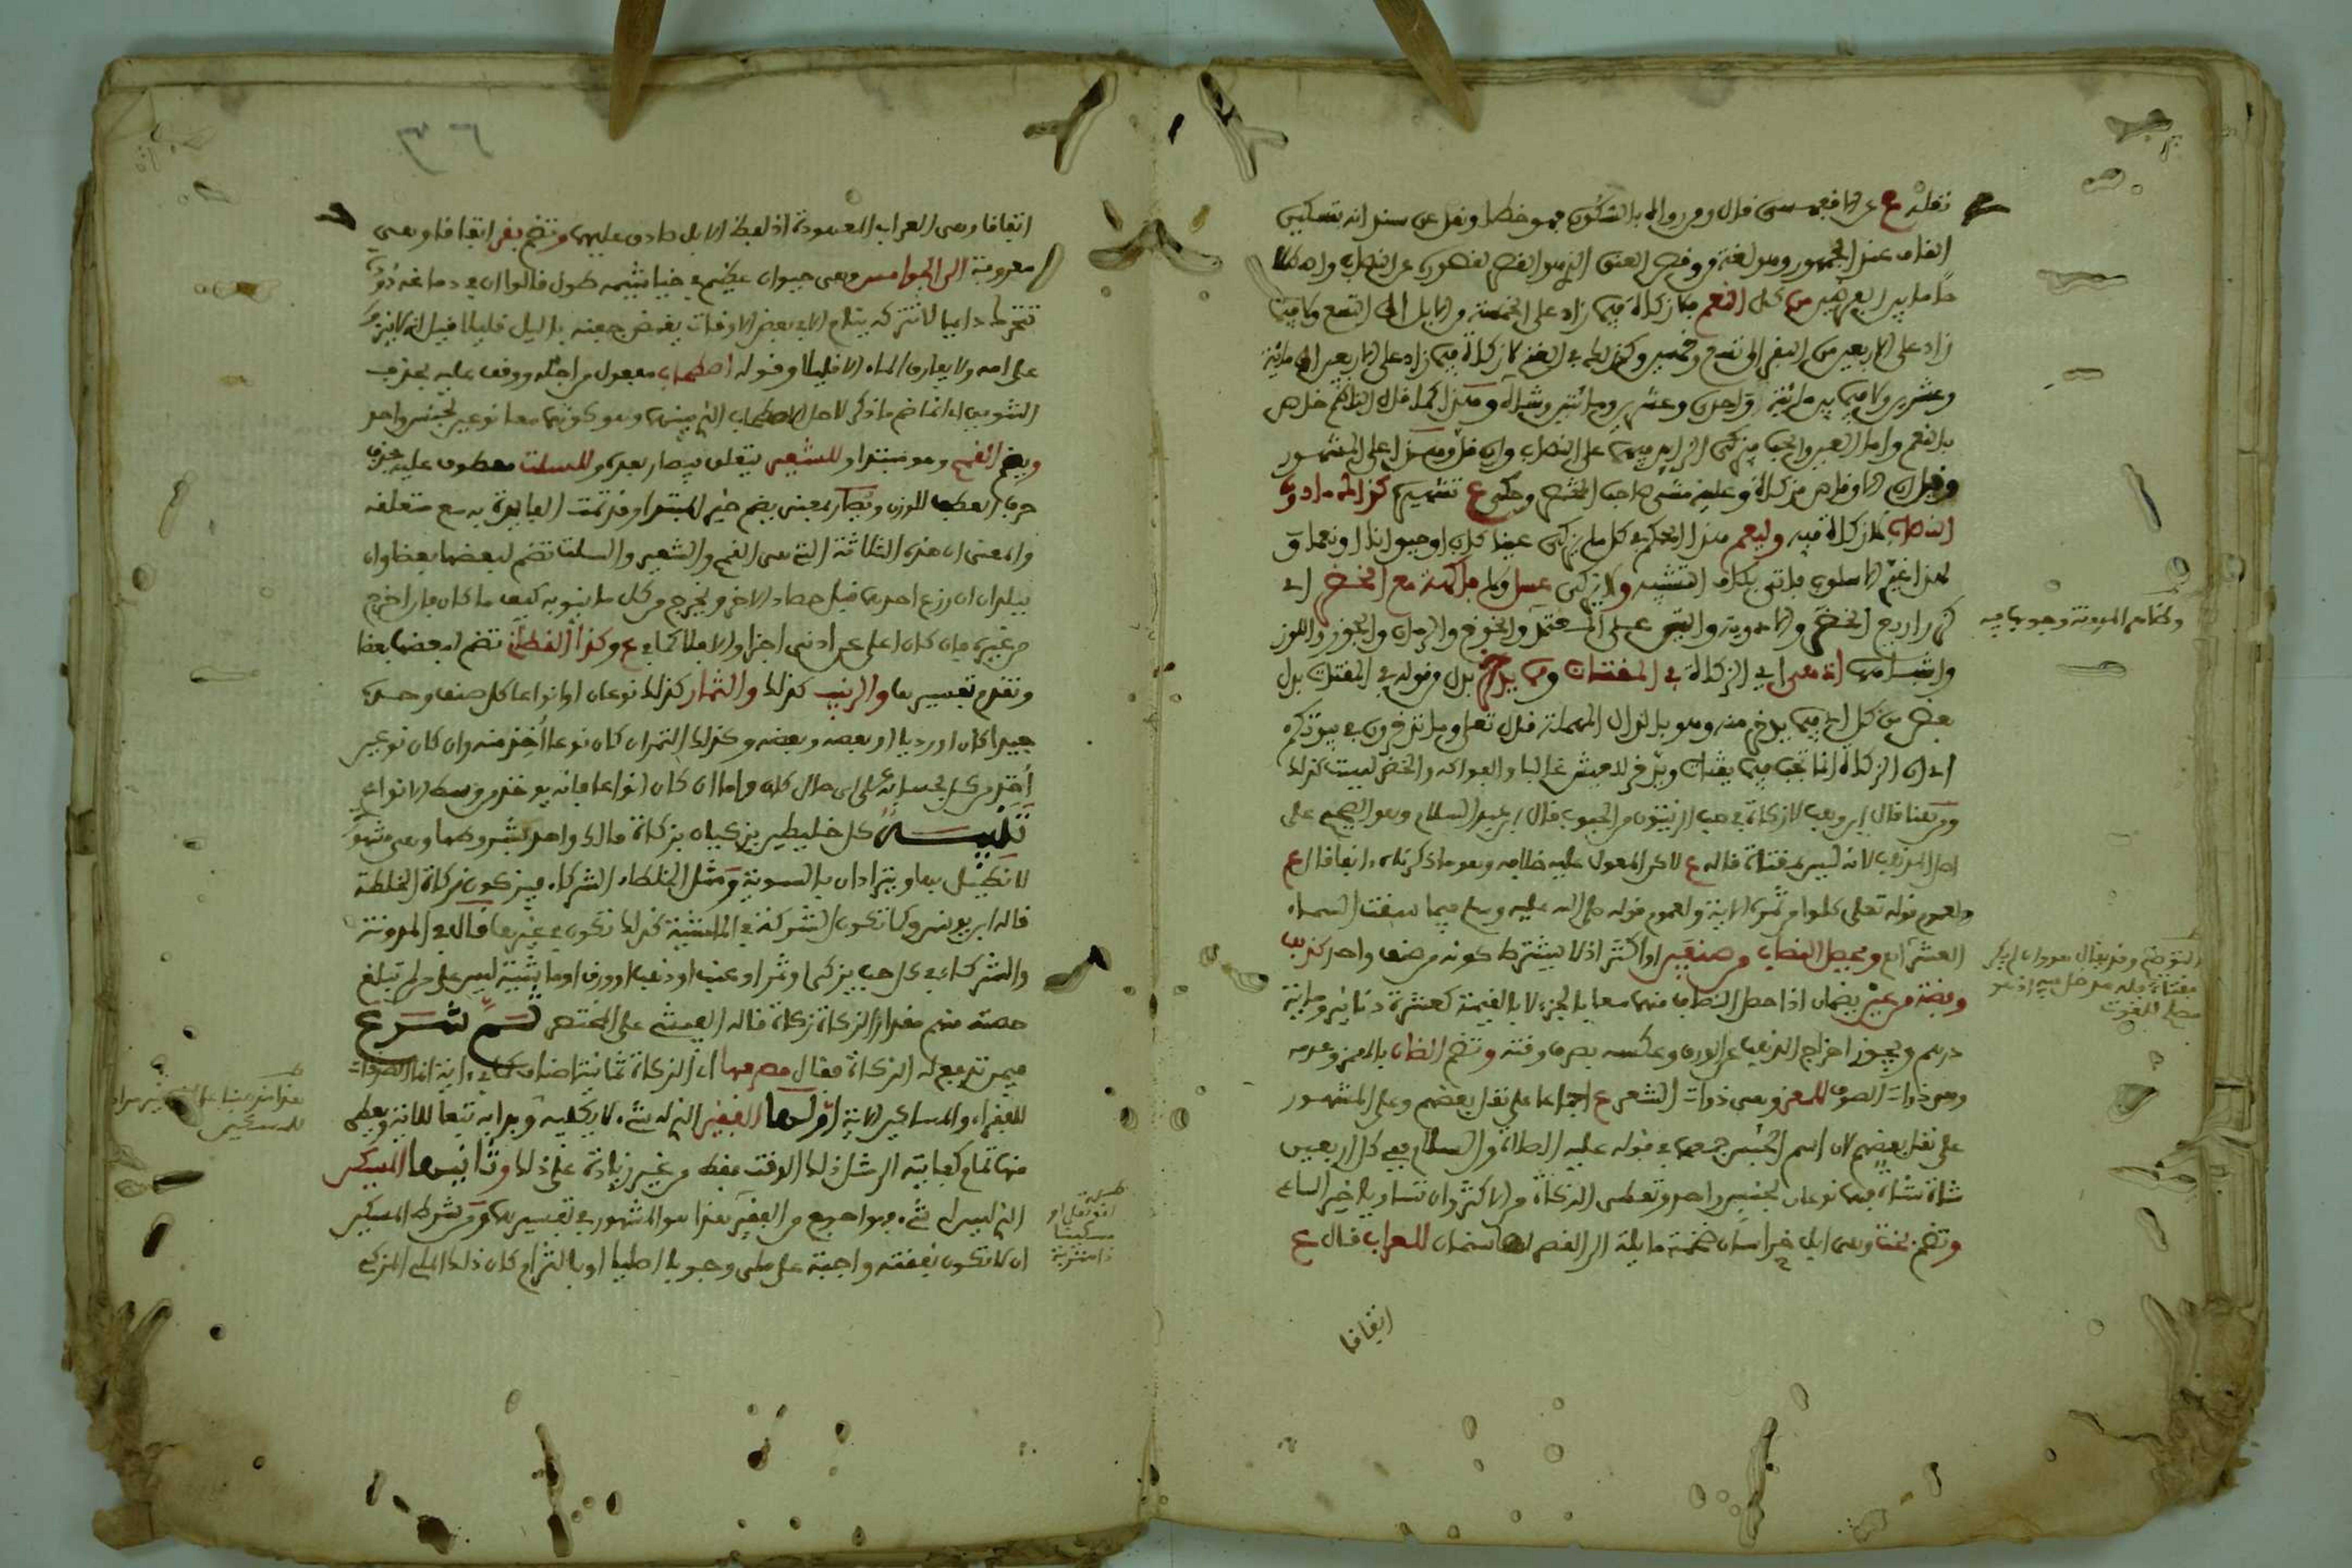 نقله ع عن الاقفهسي قال ومن رواه بالسكون فهو خطأ ونقل عن سند انه بتسكين
القاف عند الجمهور ومو لغة ووقص العنق الذي هو القصر لقصوره عن النصاب واما كلا
ما بين الفرضين من كل النعم فلا زكاة فيما زاد على الخمسة من الابل الى التسع ولا فيما
زاد على الاربعين من البقر الى تسع وخمسين وكذلك في الغنم لا زكاة فيما زاد على الاربعين الى مائة
وعشرين ولا فيما بين مائة واحدى وعشرين ومائتين وشاة وهكذا كما قال الناظم خاص
بالنعم واما العين والحب فيزكى الزايد فيهما على النصاب وان قل وهذا على المشهور
وقيل ان الاوقاص مزكاة وعليه مشى صاحب المختصر وحكى ع تشهيره كذاك ما دون
النصاب فلا زكاة فيه وليعم هذا الحكم في كل ما يزكى عينا كان او حبوانا او نعما و
لهذا غير الاسلوب فاتى بكاف التشبيه ولا يزكى عسل ولا فاكهة مع الخضر اي
والتين على المعتمد والخوخ والرمان والجوز واللوز
واشباهها اذ هي اي الزكاة في المقتات مما يدخر بدل وقوله في المقتات بدل
بعض من كل اي فيما يدخر منه وهو بالدال المهملة قال تعالى وما تدخرون في بيوتكم
اي ان الزكاة انما تجب فيما يقتات ويدخر للعيش غالبا والفواكه والخضر ليست كذلك
ومن هنا قال ابن وهب لا زكاة في حب الزيتون من الحبوب قال ابن عبد السلام وهو الصحيح على
اصل المذهب لانه ليس بمقتات قاله ع لاكن المعول عليه خلافه وهو ما ذكرناه اتفاقا ع
ولعموم قوله تعالى كلوا من ثمره الاية ولعموم قوله صلى الله عليه وسلم فيما سقت السماء
العشر اي ويحصل النصاب من صنفين او اكثر اذ لا يشترط كونه من صنف واحد كذهب
وفضة من عين يضمان اذا حصل النصاب منهما معا بالجزء لا بالقيمة كعشرة دنانير ومائة
درهم ويجوز اخراج الذهب عن الورق وعكسه بصرف وقته وتضم الضان بالهمز وعدمه
وهي ذوات الصوف للمعز وهي ذوات الشعر ع اجماعا على نقل بعضهم وعلى المشهور
على نقل بعضهم لان اسم الجنس جمعهما في قوله عليه الصلاة والسلام في كل اربعين
شاة شاة فهما نوعان لجنس واحد وتعطى الزكاة من الاكثر وان تساويا خير الساعي
وتضم بخت وهي ابل خراسان ضخمة مايلة الى القصر لها سنمان للعراب قال ع
اتفاقا
ولظاهر المدونة وجوبها فيه
التوضيح وقد يقال
مقتات
مصلح للقوت
اتفاقا وهي العراب المعهودة اذ لفظ الابل صادق عليها وتضم بقر اتفاقا وهي
معروفة الى الجواميس وهي حيوان عظيم في خياشيمه طول قالوا ان في دماغه دودا
تتحرك دايما لا تتركه ينام الا في بعض الاوقات يغمض جفنه بالليل قليلا قيل انه لا ينزو
على امه ولا يفارق الماء الا قليلا وقوله اصطحاب مفعول من اجله ووقف عليه بحذف
التنوين اي انما ضم ما ذكر لاجل الاصطحاب الذي بينهما وهو كونهما معا نوعين لجنس واحد
ويضم القمح وهو مبتدا وللشعير يتعلق بيصار بعده وللسلت معطوف عليه بحذف
حرف العطف للوزن ويصار بمعنى يضم خبر المبتدا وقد تمت الفايدة به مع متعلقه
والمعنى ان هذه الثلاثة التي هي القمح والشعير والسلت تضم لبعضها بعضا وان
ببلدان ان زرع احدها قبل حصاد الاخر ويخرج من كل ما ينوبه كيف ما كان فان اخرج
من غيره فان كان اعلى عن ادنى اجزا والا فلا كما في ع وكذا القطاني تضم لبعضها بعضا
وتقدم تفسيرها والزبيب كذلك والثمار كذلك نوعان او انواعا كل صنف وحده
جيدا كان او رديا او بعضه وبعضه وكذلك الثمر ان كان نوعا اخذ منه وان كان نوعين
اخذ من كل بحسابه على اي حال كان واما ان كان انواعا فانه يوخذ من وسط الانواع
تنبيه كل خليطين يزكيان بزكاة مالك واحد بشروطهما وهي مشهو
لا نطيل بها ويترادان بالسوية ومثل الخلطاء الشركاء فيزكون زكاة الخلطة
قاله ابن يونس وكما تكون الشركة في الماشية كذلك تكون في غيرها قال في المدونة
والشركاء في كل حب يزكى او ثمر او عنب او ذهب او ورق او ماشية ليس على من لم تبلغ
حصته منهم مقدار الزكاة زكاة قاله الفيشي على المختصر ثم شرع
فيمن تدفع له الزكاة فقال مصرفها اي الزكاة ثمانية اصناف كما في اية انما الصدقات
للفقراء والمساكين الاية اولها الفقير الذي له شيء لا يكفيه وبدا به تبعا للاية ويعطى
منها تمام كفايته الى مثل ذلك الوقت فقط من غير زيادة على ذلك وثانيها المسكين
الذي ليس له شيء فهو احوج من الفقير هذا هو المشهور في تفسيرهما ومن شرط المسكين
ان لا تكون نفقته واجبة على ملي وجوبا اصليا او بالتزام كان ذلك الملي المزكي
قوله تعالى او
مسكينا
ذا متربة